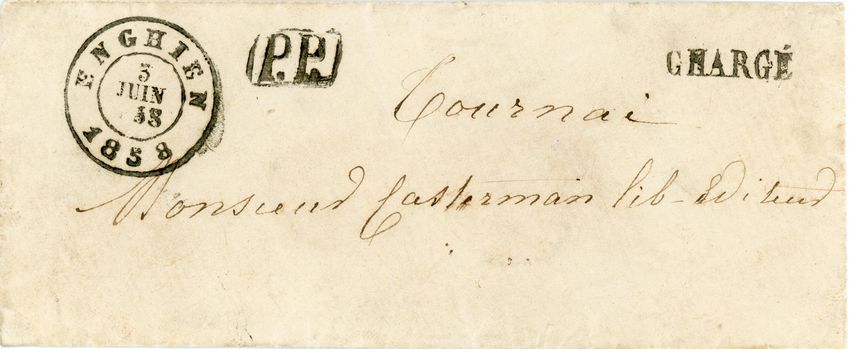 ENGHIEN
3
JUIN
58
1858
P.P.
CHARGÉ
Tournai
Monsieur Casterman lib-Editeur